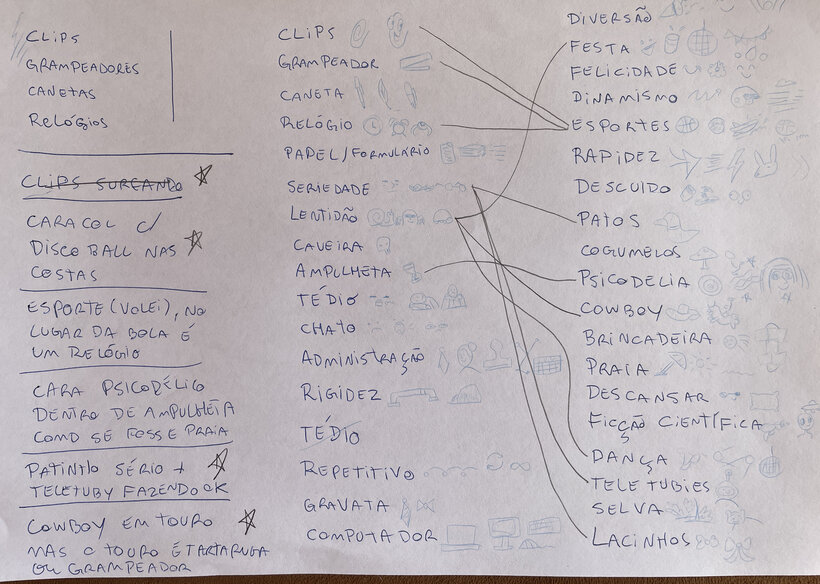 CLIPS
GRAMPEADORES
CANETAS
RELÓGIOS
CLIPS SURFANDO
CARACOL C/
DISCO BALL NAS
COSTAS
ESPORTE (VOLEI), NO
LUGAR DA BOLA É
UM RELÓGIO
CARA PSICODÉLICO
DENTRO DE AMPULHETA
COMO SE FOSSE PRAIA
PATINHO SÉRIO +
TELETUBY FAZENDO OK
COWBOY EM TOURO
MAS O TOURO É TARTARUGA
OU GRAMPEADOR
CLIPS
GRAMPEADOR
CANETA
RELÓGIO
PAPEL/FORMULÁRIO
SERIEDADE
LENTIDÃO
CAVEIRA
AMPULHETA
TÉDIO
CHATO
ADMINISTRAÇÃO
RIGIDEZ
TÉDIO
REPETITIVO
GRAVATA
COMPUTADOR
DIVERSÃO
FESTA
FELICIDADE
DINAMISMO
ESPORTES
RAPIDEZ
DESCUIDO
PATOS
COGUMELOS
PSICODELIA
COWBOY
BRINCADEIRA
PRAIA
DESCANSAR
FICÇÃO CIENTÍFICA
DANÇA
TELETUBIES
SELVA
LACINHOS